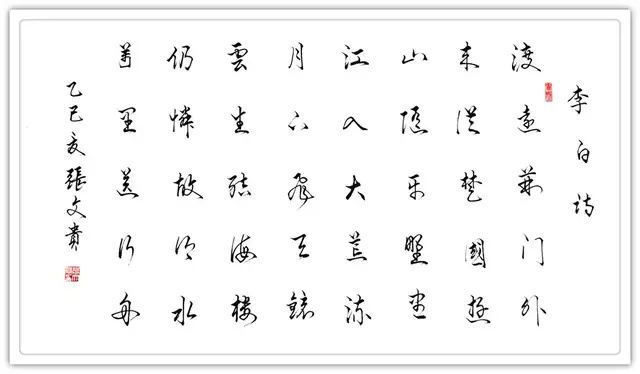 李白诗
渡远荆门外
来从楚國遊
山随平野尽
江入大荒流
月下飛天镜
雲生结海楼
仍憐故乡水
萬里送行舟
乙巳夏張文貴